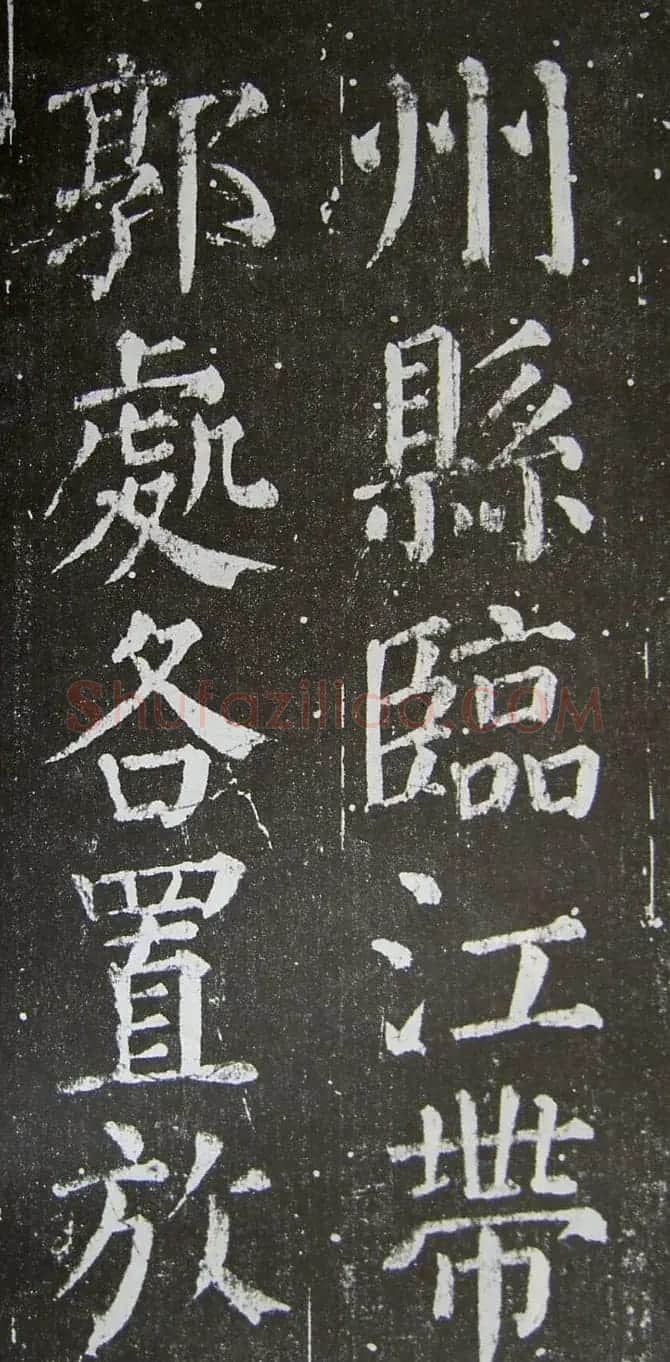 州縣臨江帶
郭處各置放
Shufaziliao.COM